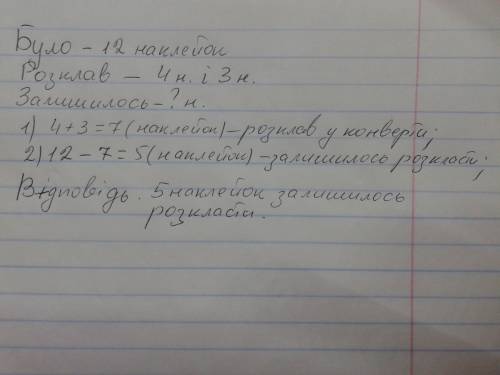 Було - 12 наклейок
Розклав — 4 н. і 3 н.
Залишилось - ? н.
1) 4 + 3 = 7 (наклейок) - розклав у конверти;
2) 12 - 7 = 5 (наклейок) - залишилось розкласти;
Відповідь. 5 наклейок залишилось
розкласти.